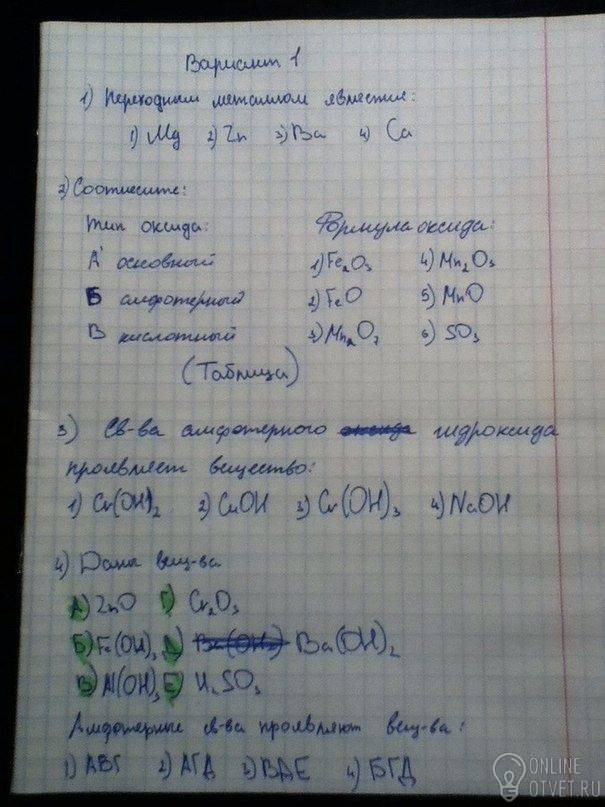 Вариант 1
1) Переходным металлом является:
1) Mg 2) Zn 3) Ba 4) Ca
2) Соотнесите:
Тип оксида: Формула оксида:
А основный 1) Fe₂O₃ 4) Mn₂O₃
Б амфотерный 2) FeO 5) MnO
В кислотный 3) Mn₂O₇ 6) SO₃
(Таблица)
3) Св-ва амфотерного оксида гидроксида
проявляет вещество:
1) Cr(OH)₂ 2) CuOH 3) Cr(OH)₃ 4) NaOH
4) Даны вещ-ва
А) ZnO Г) Cr₂O₃
Б) Fe(OH)₃ Д) Ba(OH₂) Ba(OH)₂
В) Al(OH)₃ Е) H₂SO₃
Амфотерные св-ва проявляют вещ-ва:
1) АВГ 2) АГД 3) ВДЕ 4) БГД
ONLINE
OTVET.RU